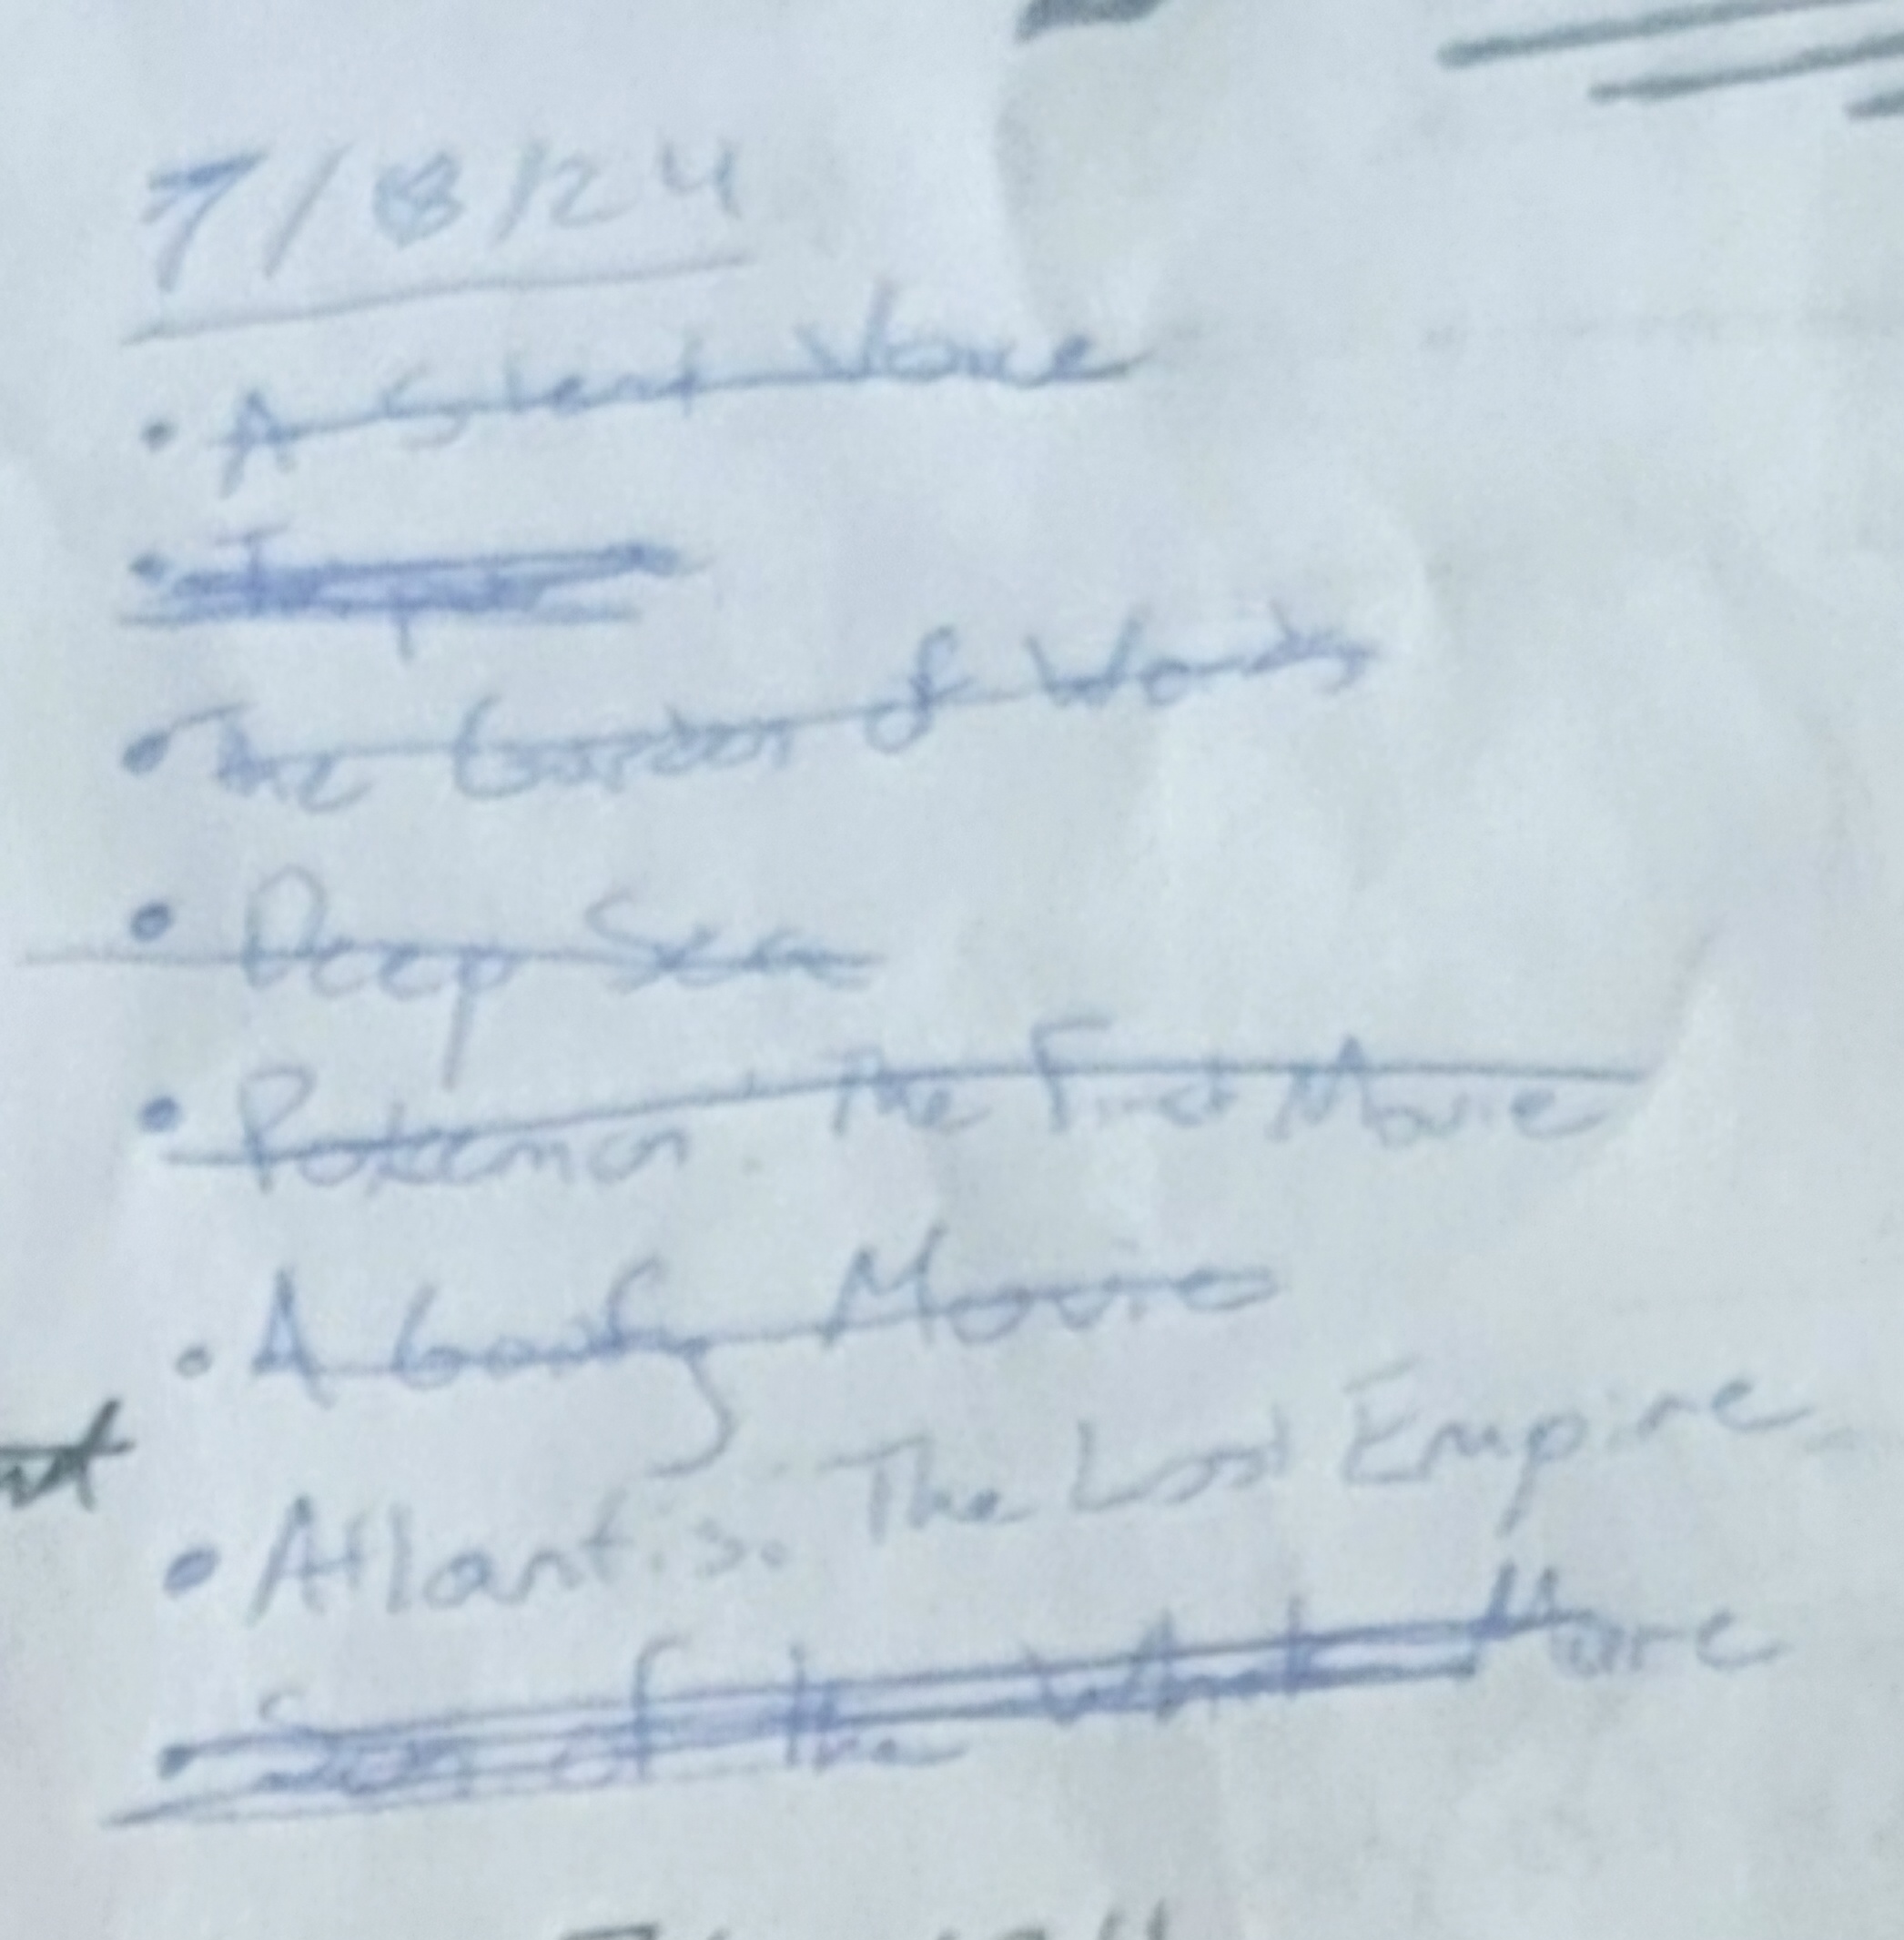 7/8/24
• A Silent Voice
•
• The Garden of Words
• Deep Sea
• Pokemon: The First Movie
• A Goofy Movie
• Atlantis: The Lost Empire
• Son of the White Mare